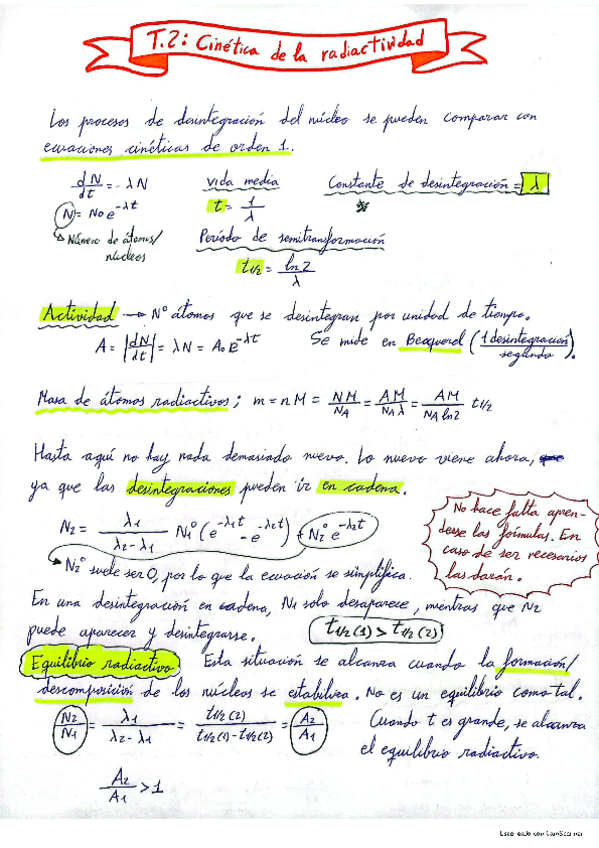 T.2: Cinética de la radiactividad
Los procesos de desintegración del núcleo se pueden comparar con
ecuaciones cinéticas de orden 1.
dN/dt = -λN
vida media
Constante de desintegración = λ
N = N₀ e^-λt
t = 1/λ
Número de átomos/
núcleos
Período de semitransformación
t1/2 = ln2/λ
Actividad → Nº átomos que se desintegran por unidad de tiempo.
A = |dN/dt| = λN = A₀ e^-λt
Se mide en Becquerel (1 desintegración/segundo).
Masa de átomos radiactivos; m = nM = NM/NA = AM/NAλ = AM/NA ln2 t1/2
Hasta aquí no hay nada demasiado nuevo. Lo nuevo viene ahora,
ya que las desintegraciones pueden ir en cadena.
N₂ = λ₁/λ₂-λ₁ N₁° (e^-λ₁t - e^-λ₂t) + N₂° e^-λ₂t
No hace falta apren-
derse las fórmulas. En
caso de ser necesarias
las darán.
N₂° suele ser 0, por lo que la ecuación se simplifica.
En una desintegración en cadena, N₁ solo desaparece, mientras que N₂
puede aparecer y desintegrarse.
t1/2(1) > t1/2(2)
Equilibrio radiactivo Esta situación se alcanza cuando la formación/
descomposición de los núcleos se estabiliza. No es un equilibrio como tal.
N₂/N₁ = λ₁/λ₂-λ₁ = t1/2(2)/t1/2(1)-t1/2(2) = A₂/A₁
Cuando t es grande, se alcanza
el equilibrio radiactivo.
A₂/A₁ > 1
Escaneado con CamScanner